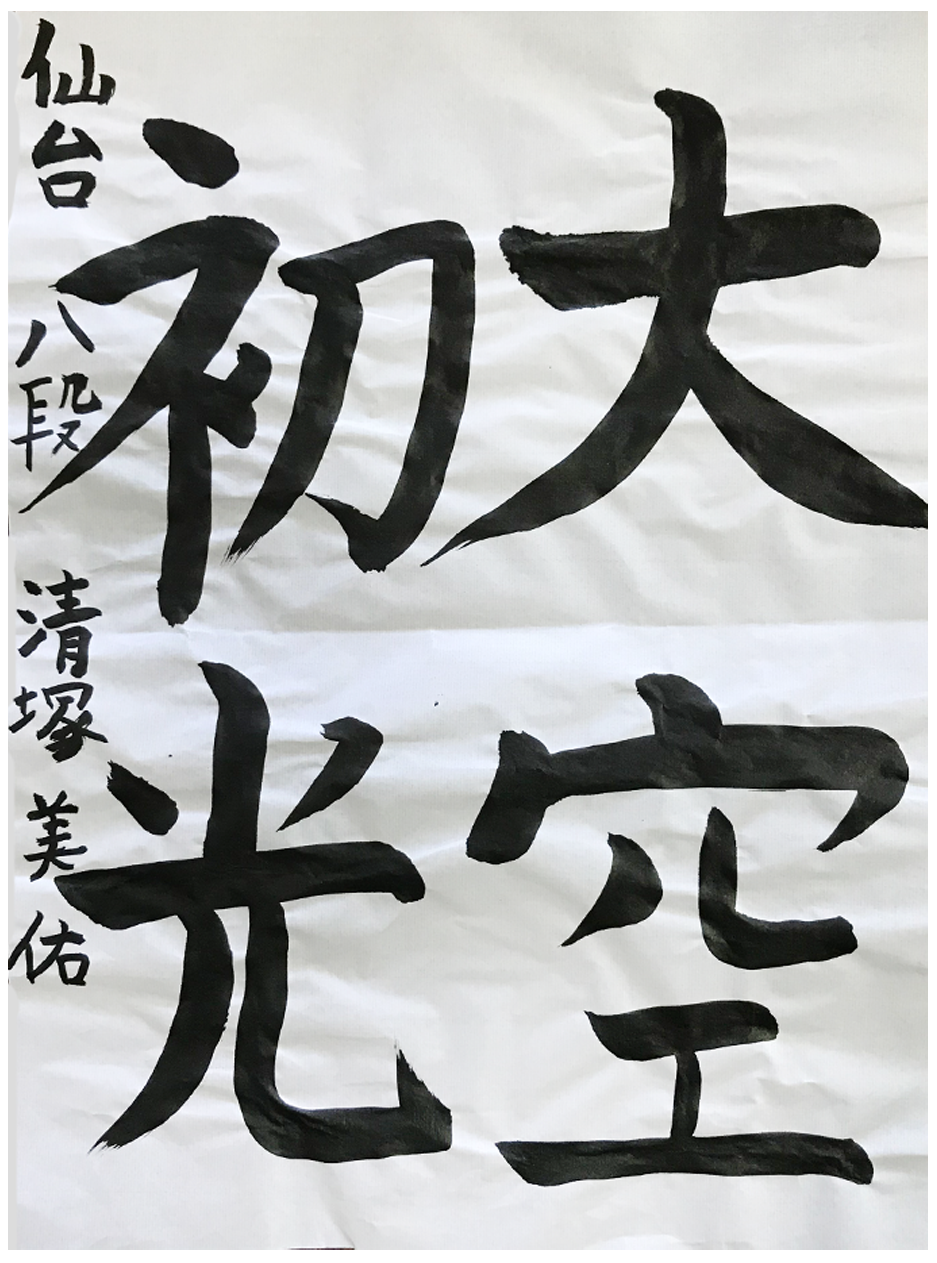 大空
初光
仙台 八段 清塚 美佑